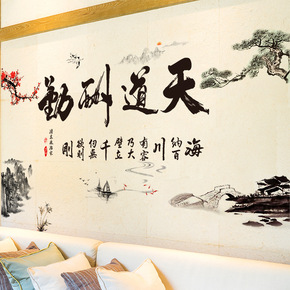 天道酬勤
海纳百川有容乃大壁立千仞無欲則剛